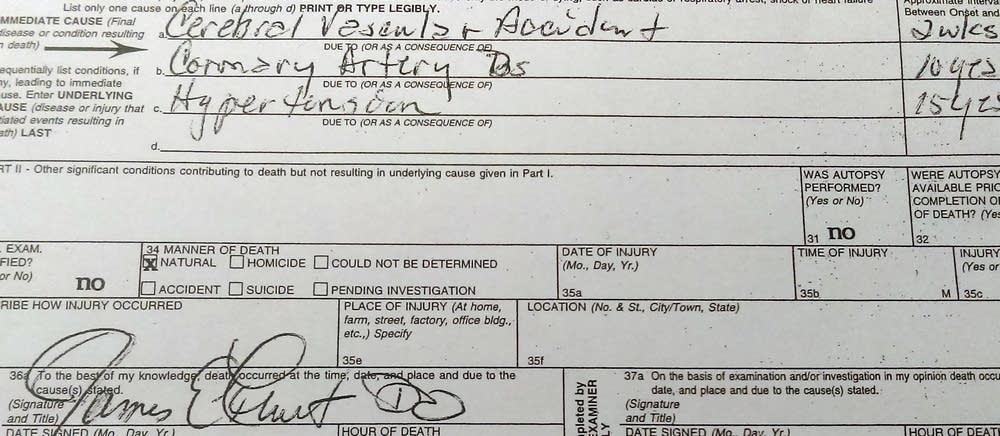 List only one cause on each line (a through d) PRINT OR TYPE LEGIBLY.
Approximate Interval
Between Onset and
IMMEDIATE CAUSE (Final
disease or condition resulting
in death)
a. Cerebral Vascular Accident
2wks
DUE TO (OR AS A CONSEQUENCE OF)
b. Coronary Artery Ds
10 yrs
DUE TO (OR AS A CONSEQUENCE OF)
equentially list conditions, if
ny, leading to immediate
use. Enter UNDERLYING
AUSE (disease or injury that
tiated events resulting in
ath) LAST
c. Hypertension
15 yrs
DUE TO (OR AS A CONSEQUENCE OF)
d.
RT II - Other significant conditions contributing to death but not resulting in underlying cause given in Part I.
WAS AUTOPSY
PERFORMED?
(Yes or No)
31 no
WERE AUTOPSY
AVAILABLE PRIO
COMPLETION O
OF DEATH? (Yes
32
. EXAM.
FIED?
or No)
no
34 MANNER OF DEATH
X NATURAL HOMICIDE COULD NOT BE DETERMINED
ACCIDENT SUICIDE PENDING INVESTIGATION
DATE OF INJURY
(Mo., Day, Yr.)
35a
TIME OF INJURY
35b M
INJURY
(Yes or
35c
RIBE HOW INJURY OCCURRED
PLACE OF INJURY (At home,
farm, street, factory, office bldg.,
etc.,) Specify
35e
LOCATION (No. & St., City/Town, State)
35f
36a To the best of my knowledge, death occurred at the time, date, and place and due to the
cause(s) stated.
(Signature
and Title)
James E DO
DATE SIGNED (Mo., Day, Yr.)
HOUR OF DEATH
pleted by
EXAMINER
LY
37a On the basis of examination and/or investigation in my opinion death occu
date, and place and due to the cause(s) stated.
(Signature
and Title)
DATE SIGNED (Mo., Day, Yr.)
HOUR OF DEAT